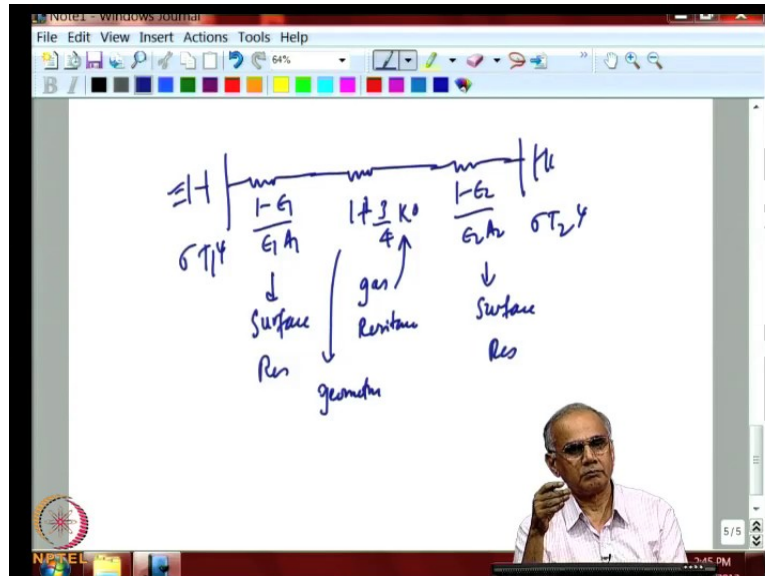 Note1 - Windows Journal
File Edit View Insert Actions Tools Help
64%
B I
1-ϵ1
ϵ1 A1
1+ 3/4 K
1-ϵ2
ϵ2 A2
σT1^4
σT2^4
↓
Surface
Res
gas
Resitance
geometr
↓
Surface
Res
5/5
NPTEL
2:45 PM